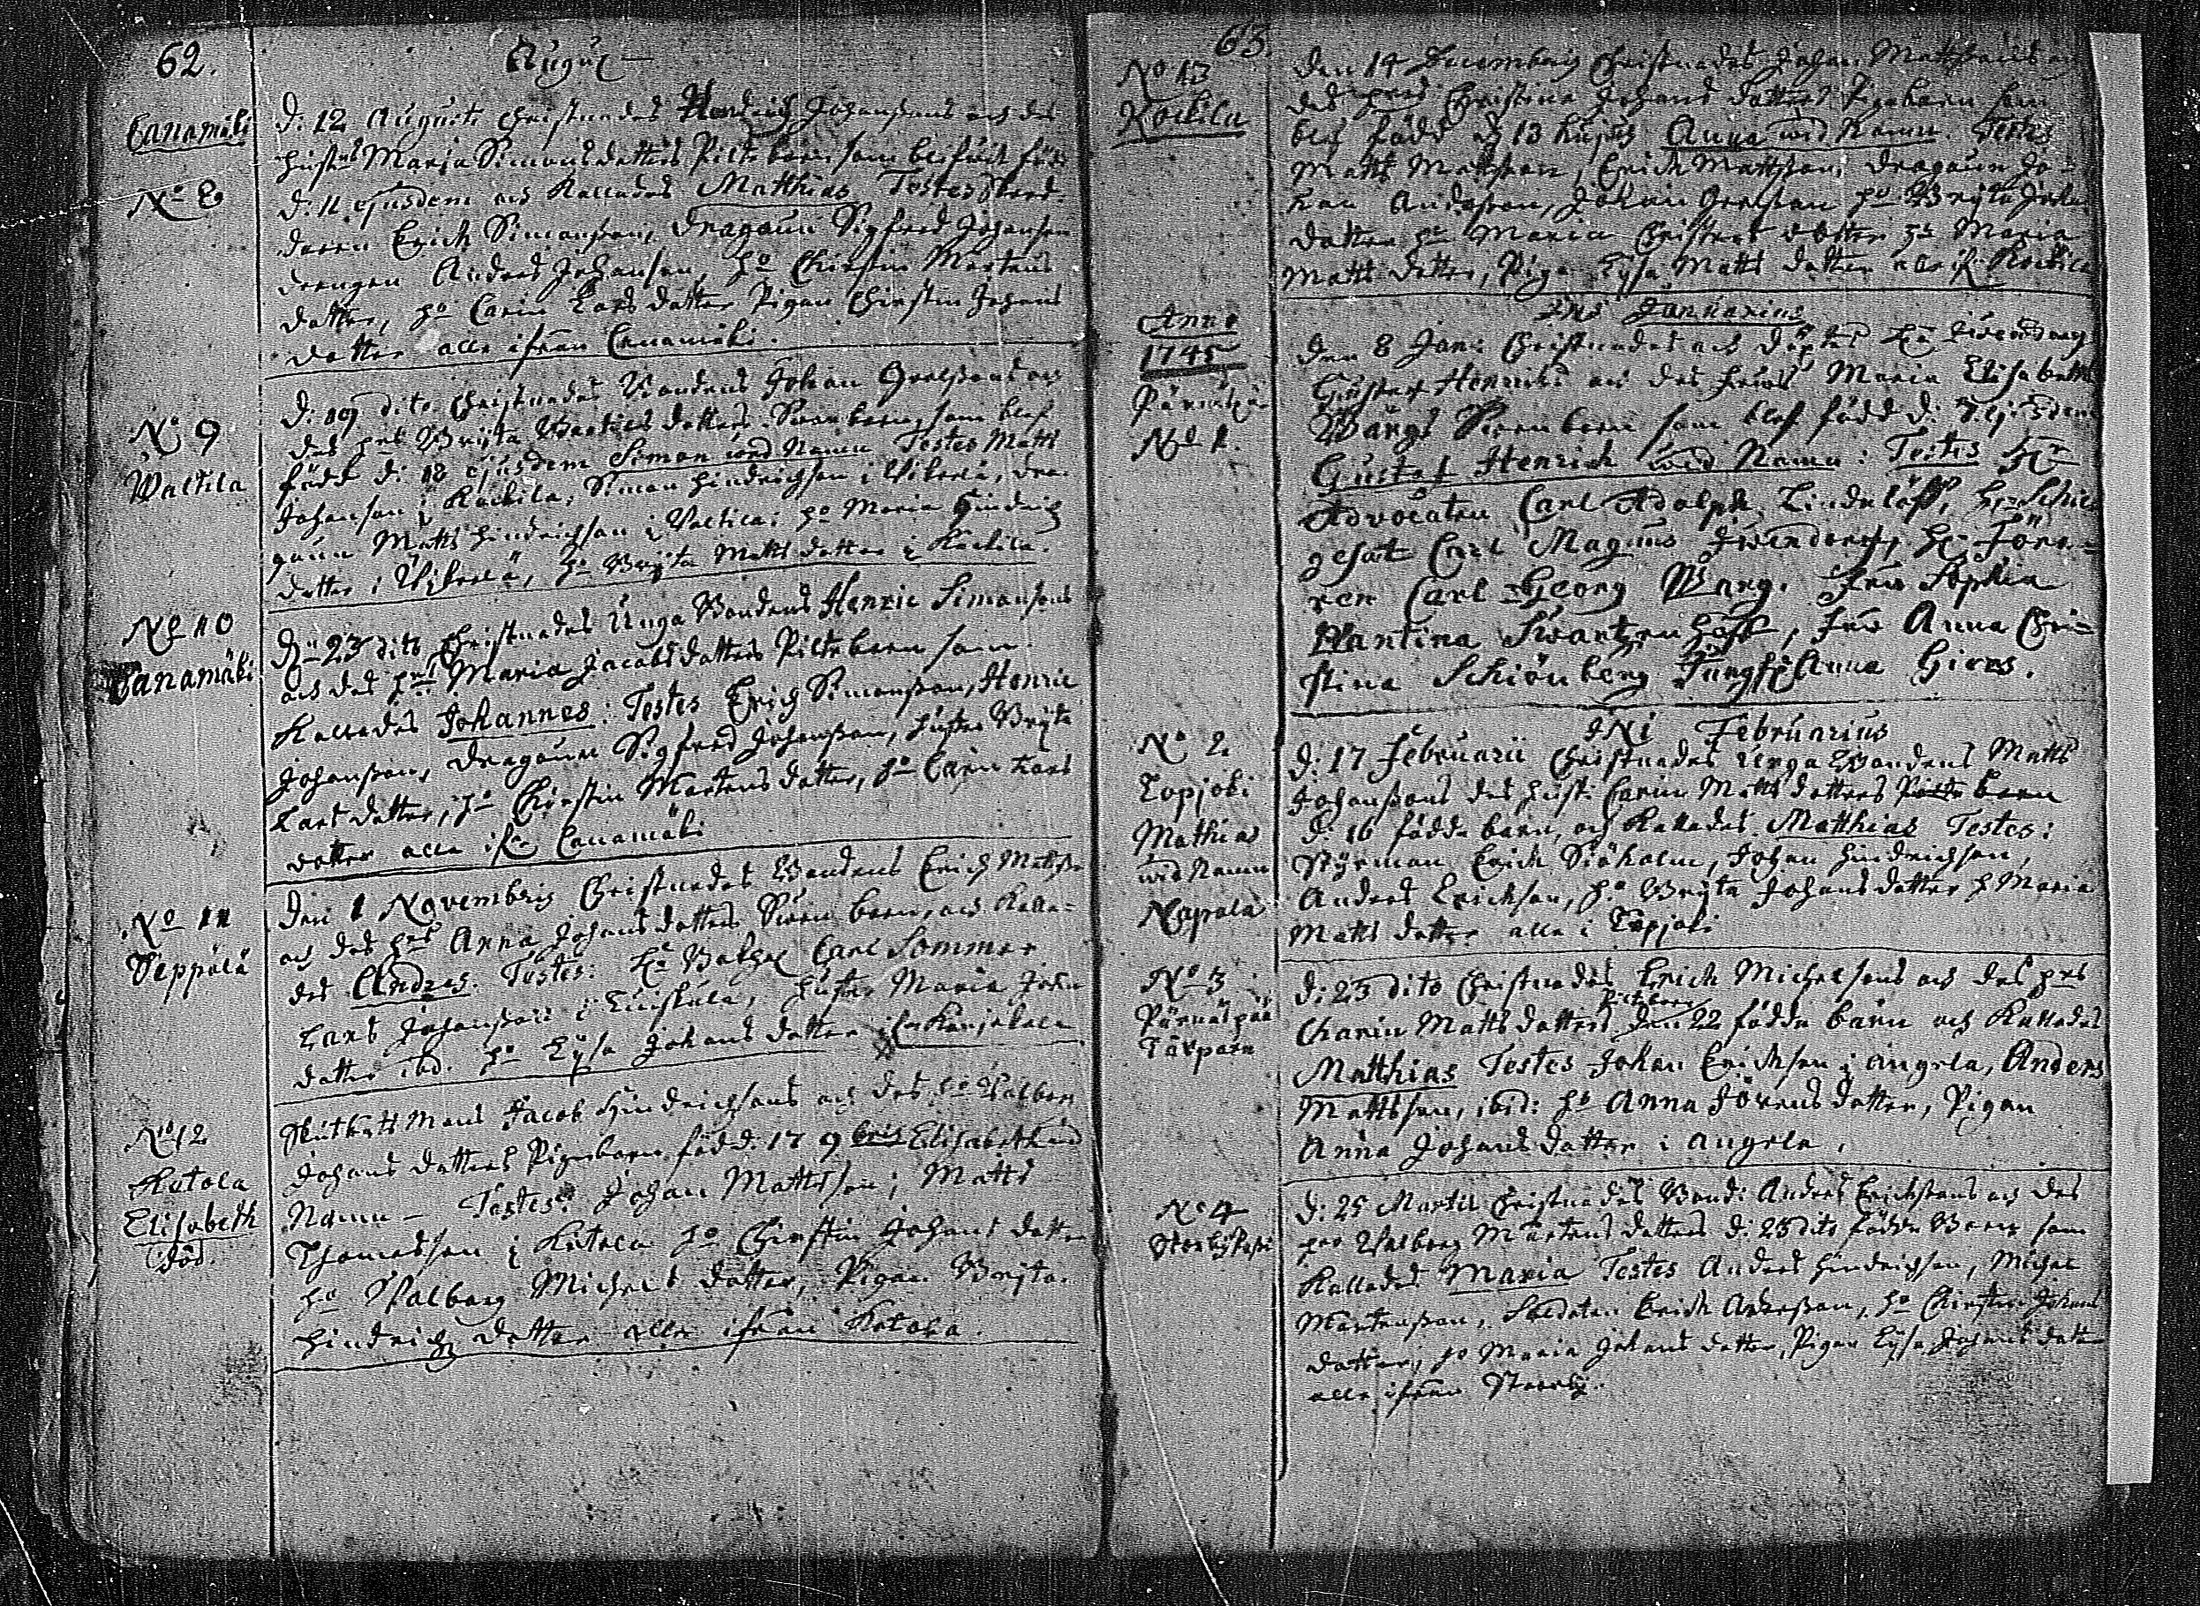 62.
August
Canamäki
N:o 8
D: 12 Augusti Christnades Hendrich Johanssons och des
hustrus Maria Simonsdotters Piltebarn som blef född
d: 11 ejusdem och kallades Matthias Testes
Erich Simonsson, Dragoun Sigfred Johansson
drengen Anders Johanson, h:o Chirstin Mortens
dotter, h:o Carin Lars dotter Pigan Chirstin Johans
dotter alle ifrån Canamäki.
N:o 9
Waltila
D: 19 dito Christnades Bondens Johan Grelssons och
des h:us Bryta Bertils dotters Swenbarn, som blef
född d: 18 ejusdem Simon wid Namn Testes Matts
Johanson i Kockila, Simon Hindrichson i Wikerlä, Dra-
goun Matts Hindrichson i Valtila: h:o Maria Hindrich
dotter i Wikerlä, h:o Bryta Matts dotter i Kockila.
N:o 10
Canamäki
D: 23 dito Christnades Unga Bondens Henric Simonsons
och des h:us Maria Jacobs dotters Piltebarn som
kallades Johannes: Testes Erich Simonsson, Henric
Johansson, Dragoun Sigfred Johansson, hustru Bryta
Lars dotter, h:o Chirstin Mortens dotter, h:o Carin Lars
dotter alle ifr. Canamäki
N:o 11
Seppälä
Den 1 Novembris Christnades Bondens Erich Matsson
och des h:us Anna Johans dotters Swen barn, och kalla-
des Andres. Testes: H:r Carl Sommer
Lars Johansson i hustru Maria Johan
dotter ibd. h:o Lysa Johans dotter ifr.
N:o 12
Kutola
Elisabeth
död.
Mans Jacob Hindrichsons och des h:o Walborg
Johans dotters Pigebarn föd d: 17 9bris Elisabeth wid
Namn – Testes: Johan Mattsson; Matts
Thomasson i Kutola h:o Chirstin Johans dotter
h:o Walborg Michels dotter, Pigan Bryta
Hindrichz dotter alle ifrån Kutola.
63.
N:o 13
Kockila
Den 14 Decembris Christnades Johan Mattssons och
des h:us Christina Johans dotters Pigebarn som
blef född d 13 hujus Anna wid Namn. Testes
Matts Mattsson, Erich Mattsson, Dragoun Jo-
han Andersson, Johan Grelsson h:o Bryta Johans
dotter h:o Maria Christers dotter h:o Maria
Matts dotter, Piga Lysa Matts dotter alle ifr. Kockila
Anno
1745
N:o 1.
INI Januarius
Den 8 Jan: Christnades och döptes H:r
Gustaf Henrichs och des fruus Maria Elisabeth
Wargs Swenbarn som blef född d: 7 ejusdem
Gustaf Henrich wid Namn: Testes H:r
Advocaten Carl Adolph Lindelöff, H:r
Carl Magnus H:r Före-
ren Carl Georg Warg. Fru Sophia
Plantina Swartzenhoff, Fru Anna Chri-
stina Schiönberg Jungf: Anna Giers.
N:o 2
Lopjoki
Mathias
wid Namn
Napala
INI Februarius
D: 17 Februarii Christnades Unga Bondens Matts
Johanssons des hust: Carin Matts dotters barn
d: 16 födde barn, och kallades Matthias Testes:
Styrman Erich Siöholm, Johan Hindrichson,
Anders Erichson, h:o Bryta Johans dotter h: Maria
Matts dotter alle i Lopjoki
N:o 3
Pärnäspää
D: 23 dito Christnades Erich Michelsons och des h:us
Charin Matts dotters den 22 födde barn och kallades
Matthias Testes Johan Erichson i Angela, Anders
Mattsson, ibid: h:o Anna Jörens dotter, Pigan
Anna Johans dotter i Angela.
N:o 4
D: 25 Martii Christnades Bond: Anders Erichssons och des
h:us Walborg Mårtens dotters d: 23 dito födde Barn som
kallades Maria Testes Anders Hindrichson, Michel
Mårtensson, Soldaten Erich Andersson, h:o Chirstin Johans
dotter, h:o Maria Johans dotter, Pigan Lysa Johans dotter
alle ifrån Storby.